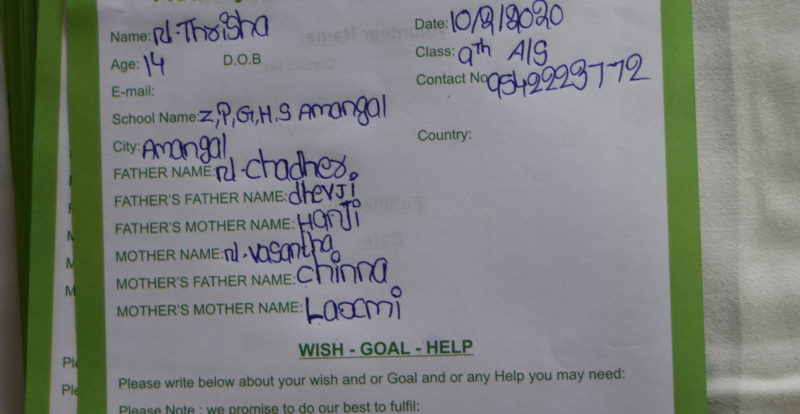 Name: N. Thrisha
Date: 10/2/2020
Age: 14 D.O.B
Class: 9th A/S
E-mail:
Contact No 9542223772
School Name: Z,P,G,H,S Amangal
City: Amangal
Country:
FATHER NAME: N. chadher.
FATHER'S FATHER NAME: dhevji
FATHER'S MOTHER NAME: HanJi
MOTHER NAME: N. vasantha
MOTHER'S FATHER NAME: chinna
MOTHER'S MOTHER NAME: Laxmi
WISH - GOAL - HELP
Please write below about your wish and or Goal and or any Help you may need:
Please Note : we promise to do our best to fulfil: